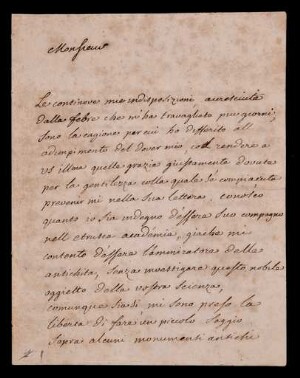 Monsieur
Le continove mie indisposizioni accresciuta
dalla febre che m'ha travagliato piu giorni,
sono la cagione per cui ho differito all
adimpimento del dover mio, col rendere a
vs illma quelle grazie giustamente dovute
per la gentilezza colla quale s'è compiaciuta
prevenir mi nella sua lettera, conosco
quanto io sia indegno d'essere suo compagno
nell etrusca accademia, giache mi
contento d'essere l'ammiratore delle
antichità, senza investigare questo nobile
oggietto della vostra scienza,
comunque siasi mi sono preso la
libertà di fare un piccolo saggio
sopra alcuni monumenti antichi